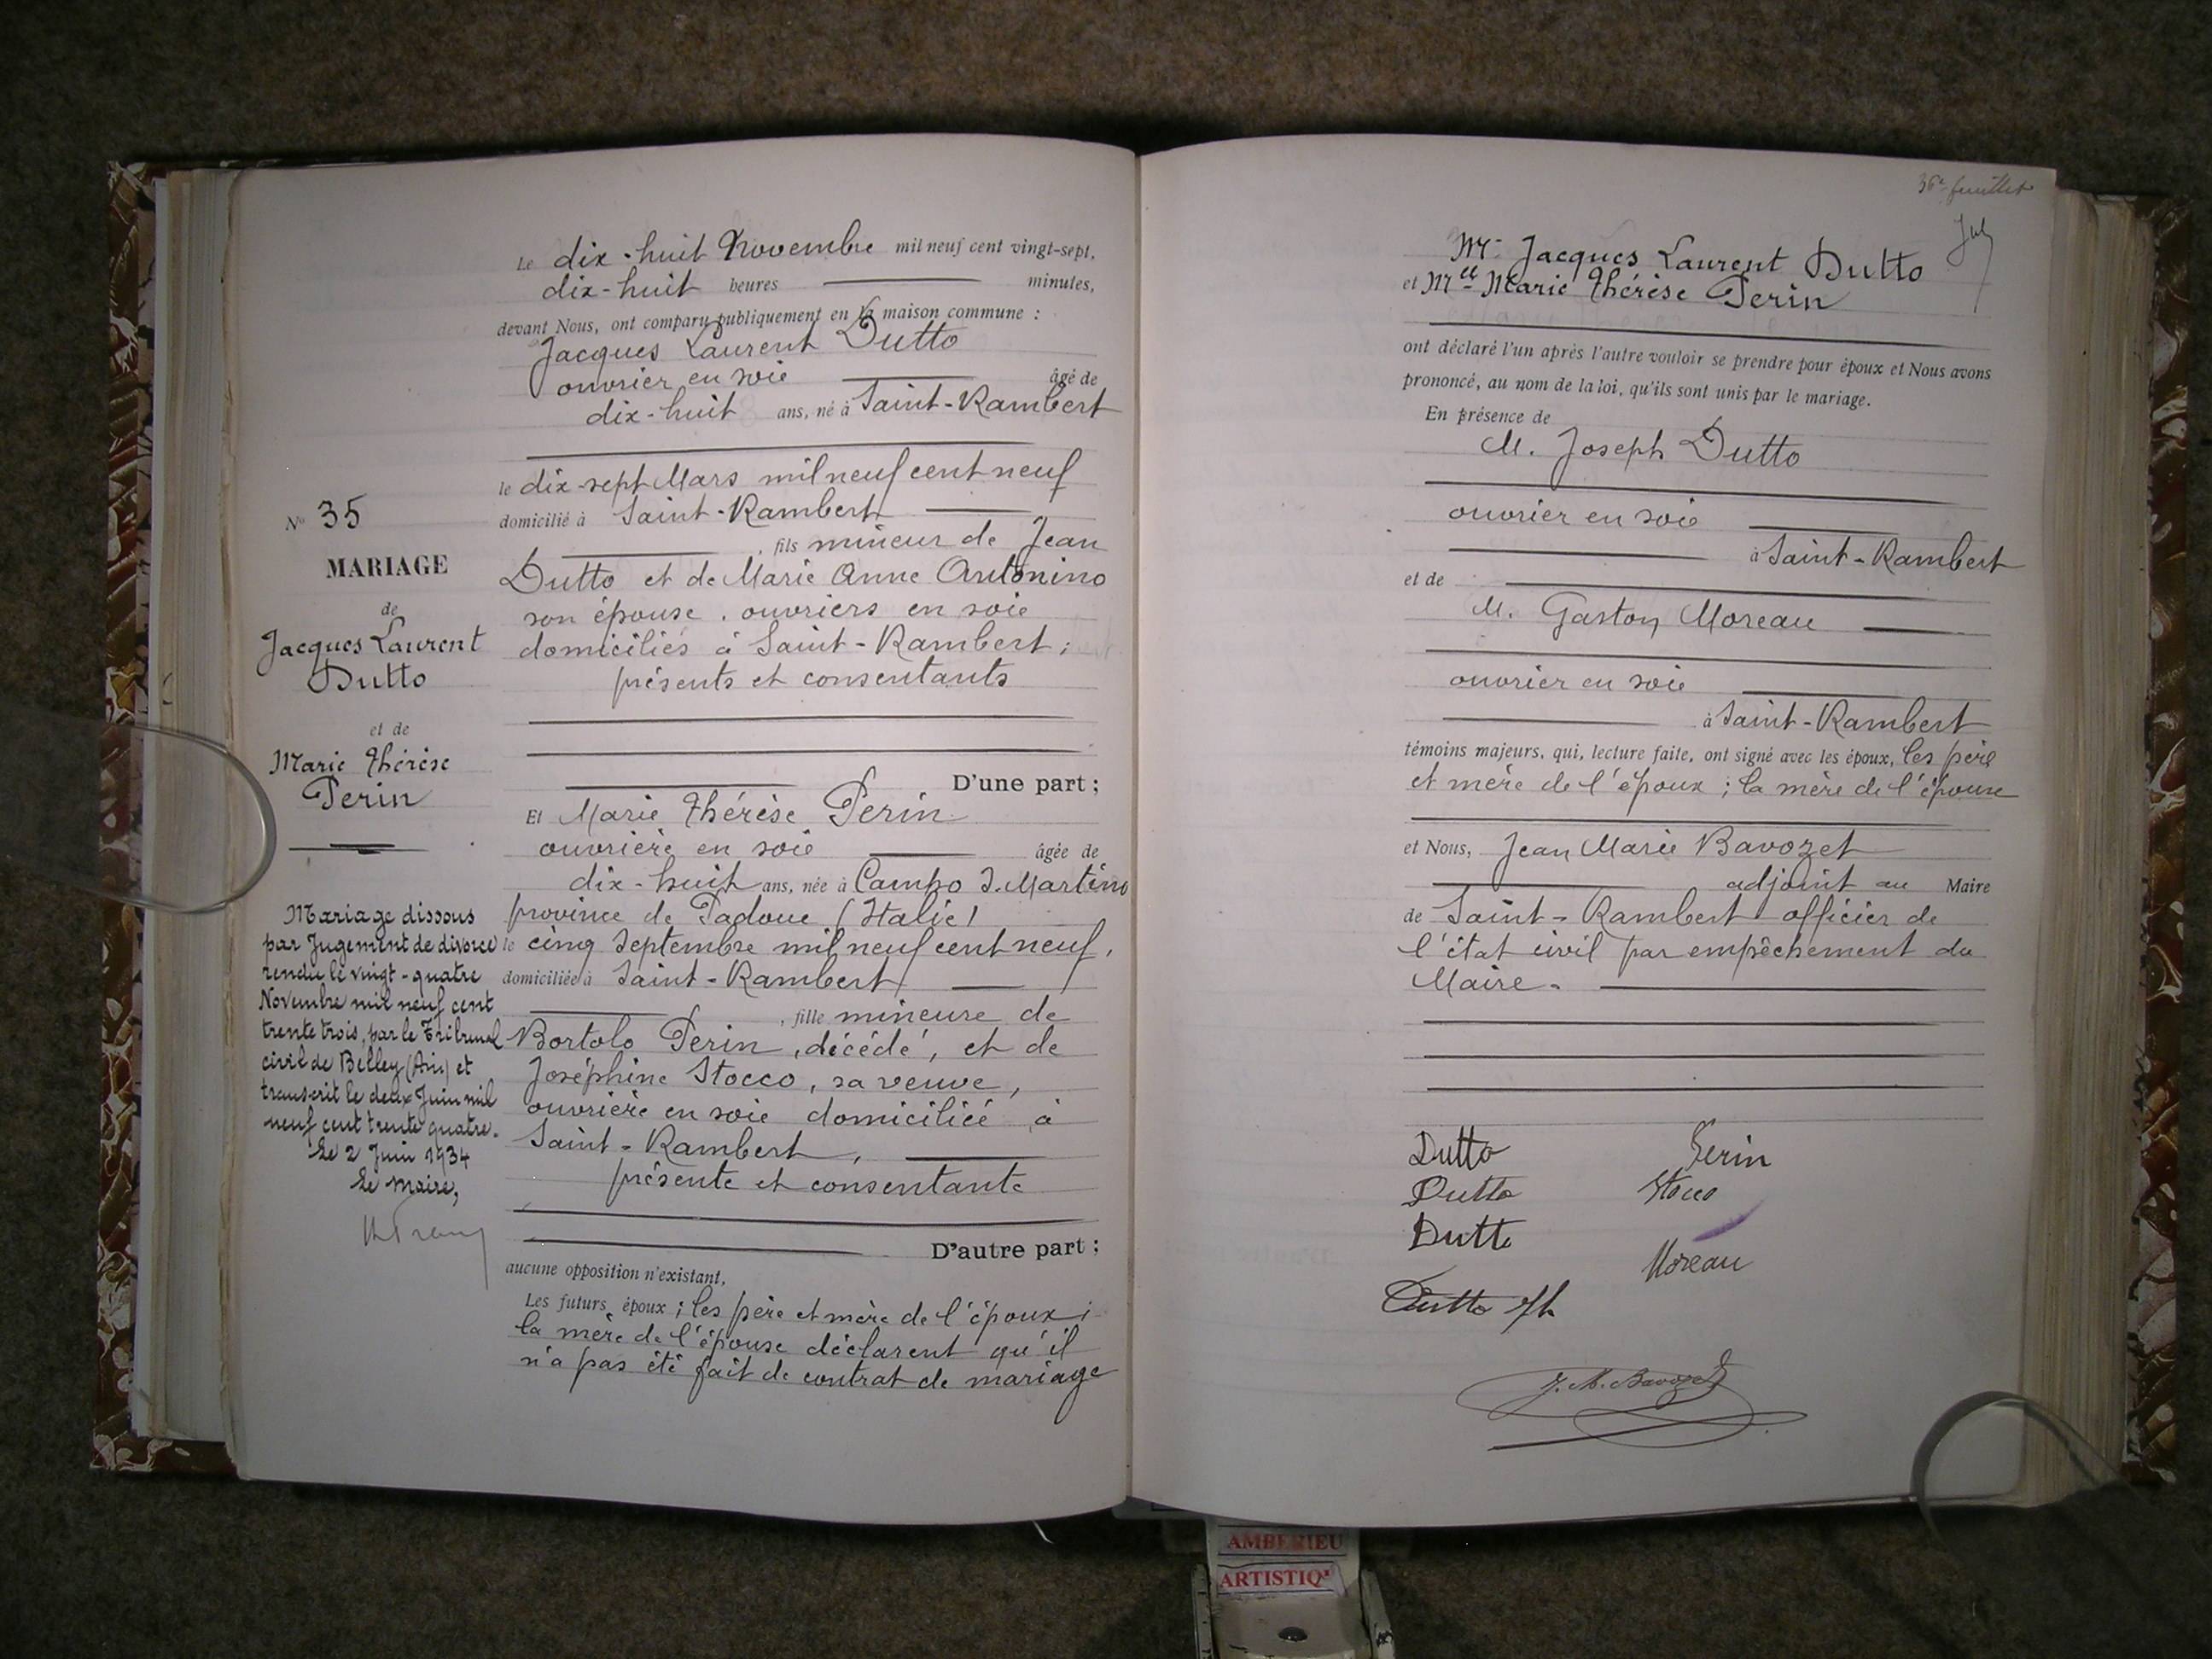 N° 35
MARIAGE
de
Jacques Laurent
Dutto
et de
Marie Thérèse
Perin
Mariage dissous
par Jugement de divorce
rendu le vingt-quatre
Novembre mil neuf cent
trente trois, par le Tribunal
civil de Belley (Ain) et
transcrit le deux Juin mil
neuf cent trente quatre.
Le 2 Juin 1934
Le Maire,
Le dix-huit Novembre mil neuf cent vingt-sept,
dix-huit heures minutes,
devant Nous, ont comparu publiquement en la maison commune :
Jacques Laurent Dutto
ouvrier en soie âgé de
dix-huit ans, né à Saint-Rambert
le dix-sept Mars mil neuf cent neuf
domicilié à Saint-Rambert
, fils mineur de Jean
Dutto et de Marie Anne Antonino
son épouse, ouvriers en soie
domiciliés à Saint-Rambert ;
présents et consentants
D'une part ;
Et Marie Thérèse Perin
ouvrière en soie âgée de
dix-huit ans, née à Campo S. Martino
province de Padoue (Italie)
le cinq Septembre mil neuf cent neuf,
domiciliée à Saint-Rambert
, fille mineure de
Bortolo Perin, décédé, et de
Joséphine Stocco, sa veuve,
ouvrière en soie domiciliée à
Saint-Rambert,
présente et consentante
D'autre part ;
aucune opposition n'existant,
Les futurs époux ; les père et mère de l'époux ;
la mère de l'épouse déclarent qu'il
n'a pas été fait de contrat de mariage
36e feuillet
Mr Jacques Laurent Dutto
et Mlle Marie Thérèse Perin
ont déclaré l'un après l'autre vouloir se prendre pour époux et Nous avons
prononcé, au nom de la loi, qu'ils sont unis par le mariage.
En présence de
M. Joseph Dutto
ouvrier en soie
à Saint-Rambert
et de
M. Gaston Moreau
ouvrier en soie
à Saint-Rambert
témoins majeurs, qui, lecture faite, ont signé avec les époux, les père
et mère de l'époux ; la mère de l'épouse
et Nous, Jean Marie Bavozet
adjoint au Maire
de Saint-Rambert officier de
l'état civil par empêchement du
Maire.
Dutto Perin
Dutto Stocco
Dutto
Moreau
Dutto Jh
J. M. Bavozet
AMBERIEU
ARTISTIQ